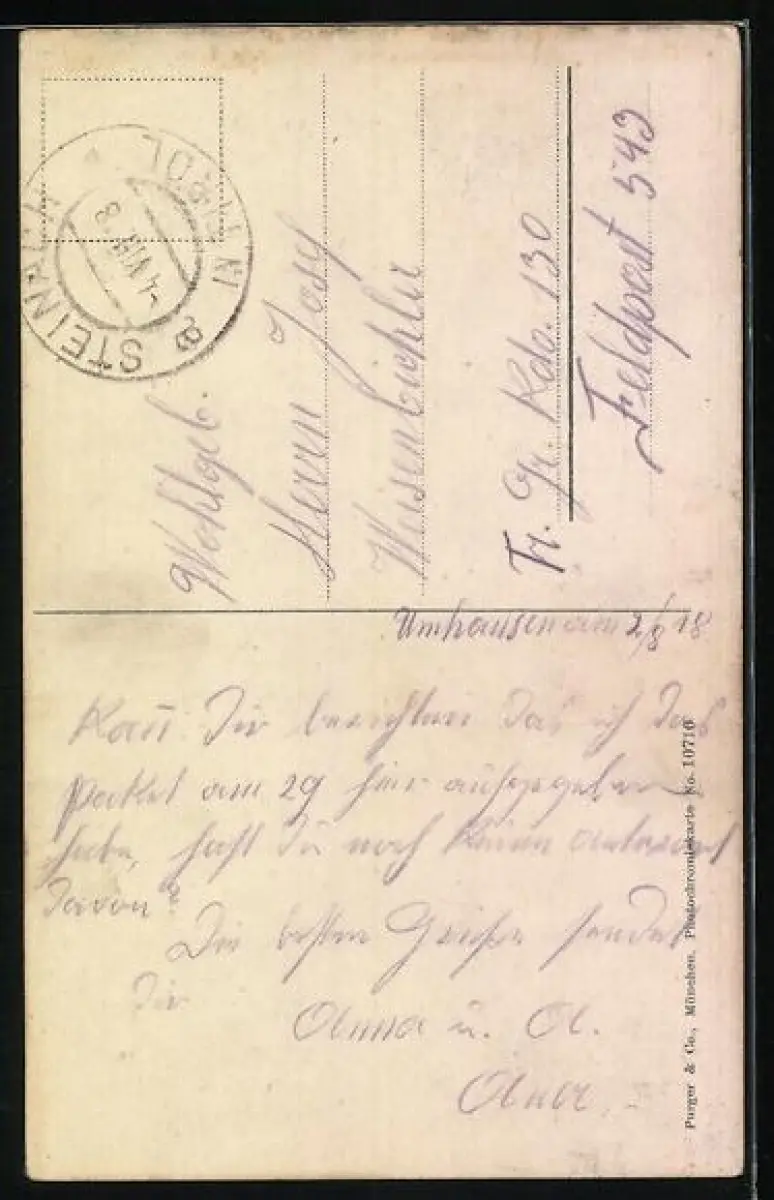 STEINACH
IN TIROL
Wohlgeb.
Herrn Josef
Weisenbichler
Fr. Gr. Kdo. 130
Feldpost 543
Umhausen am 2/8 18
Kann Dir berichten das ich das
Paket am 29 hier aufgegeben
habe, hast du noch keine
davon?
Die besten Grüße sendet
Dir
Anna u.
Purger & Co., München, Photochromiekarte No. 10716